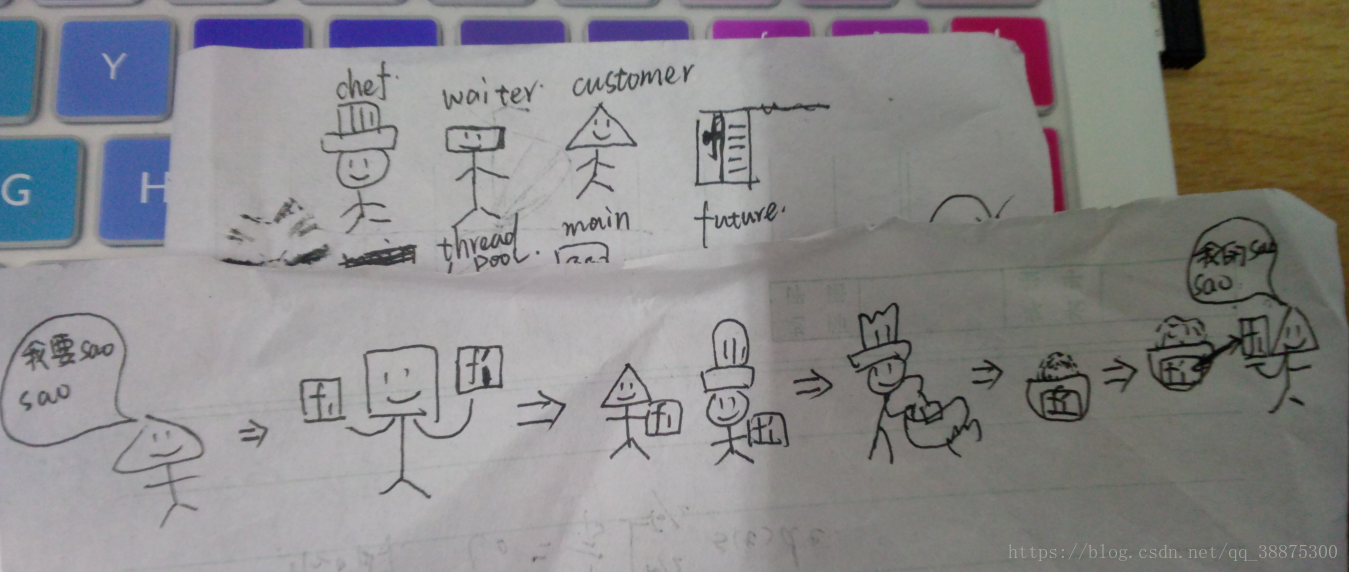 Y
G
H
chef.
waiter.
customer
thread
pool.
main
future.
我要sao
sao
f1
f1
f1
f1
f1
f1
f1
我的sao
sao
https://blog.csdn.net/qq_38875300